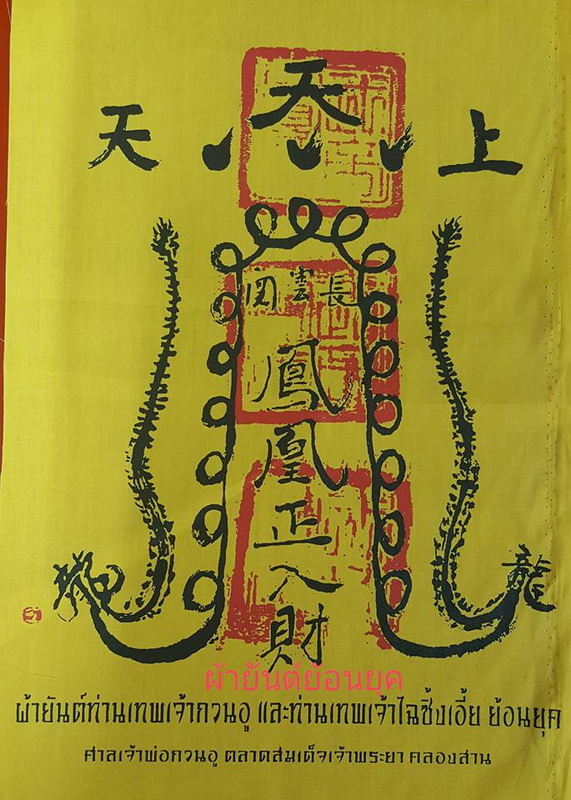 天
天 上
囝雲長
鳳
凰
正
入
財
龍
ผ้ายันต์ย้อนยุค
ผ้ายันต์ท่านเทพเจ้ากวนอู และท่านเทพเจ้าไฉซิ้งเอี้ย ย้อนยุค
ศาลเจ้าพ่อกวนอู ตลาดสมเด็จเจ้าพระยา คลองสาน